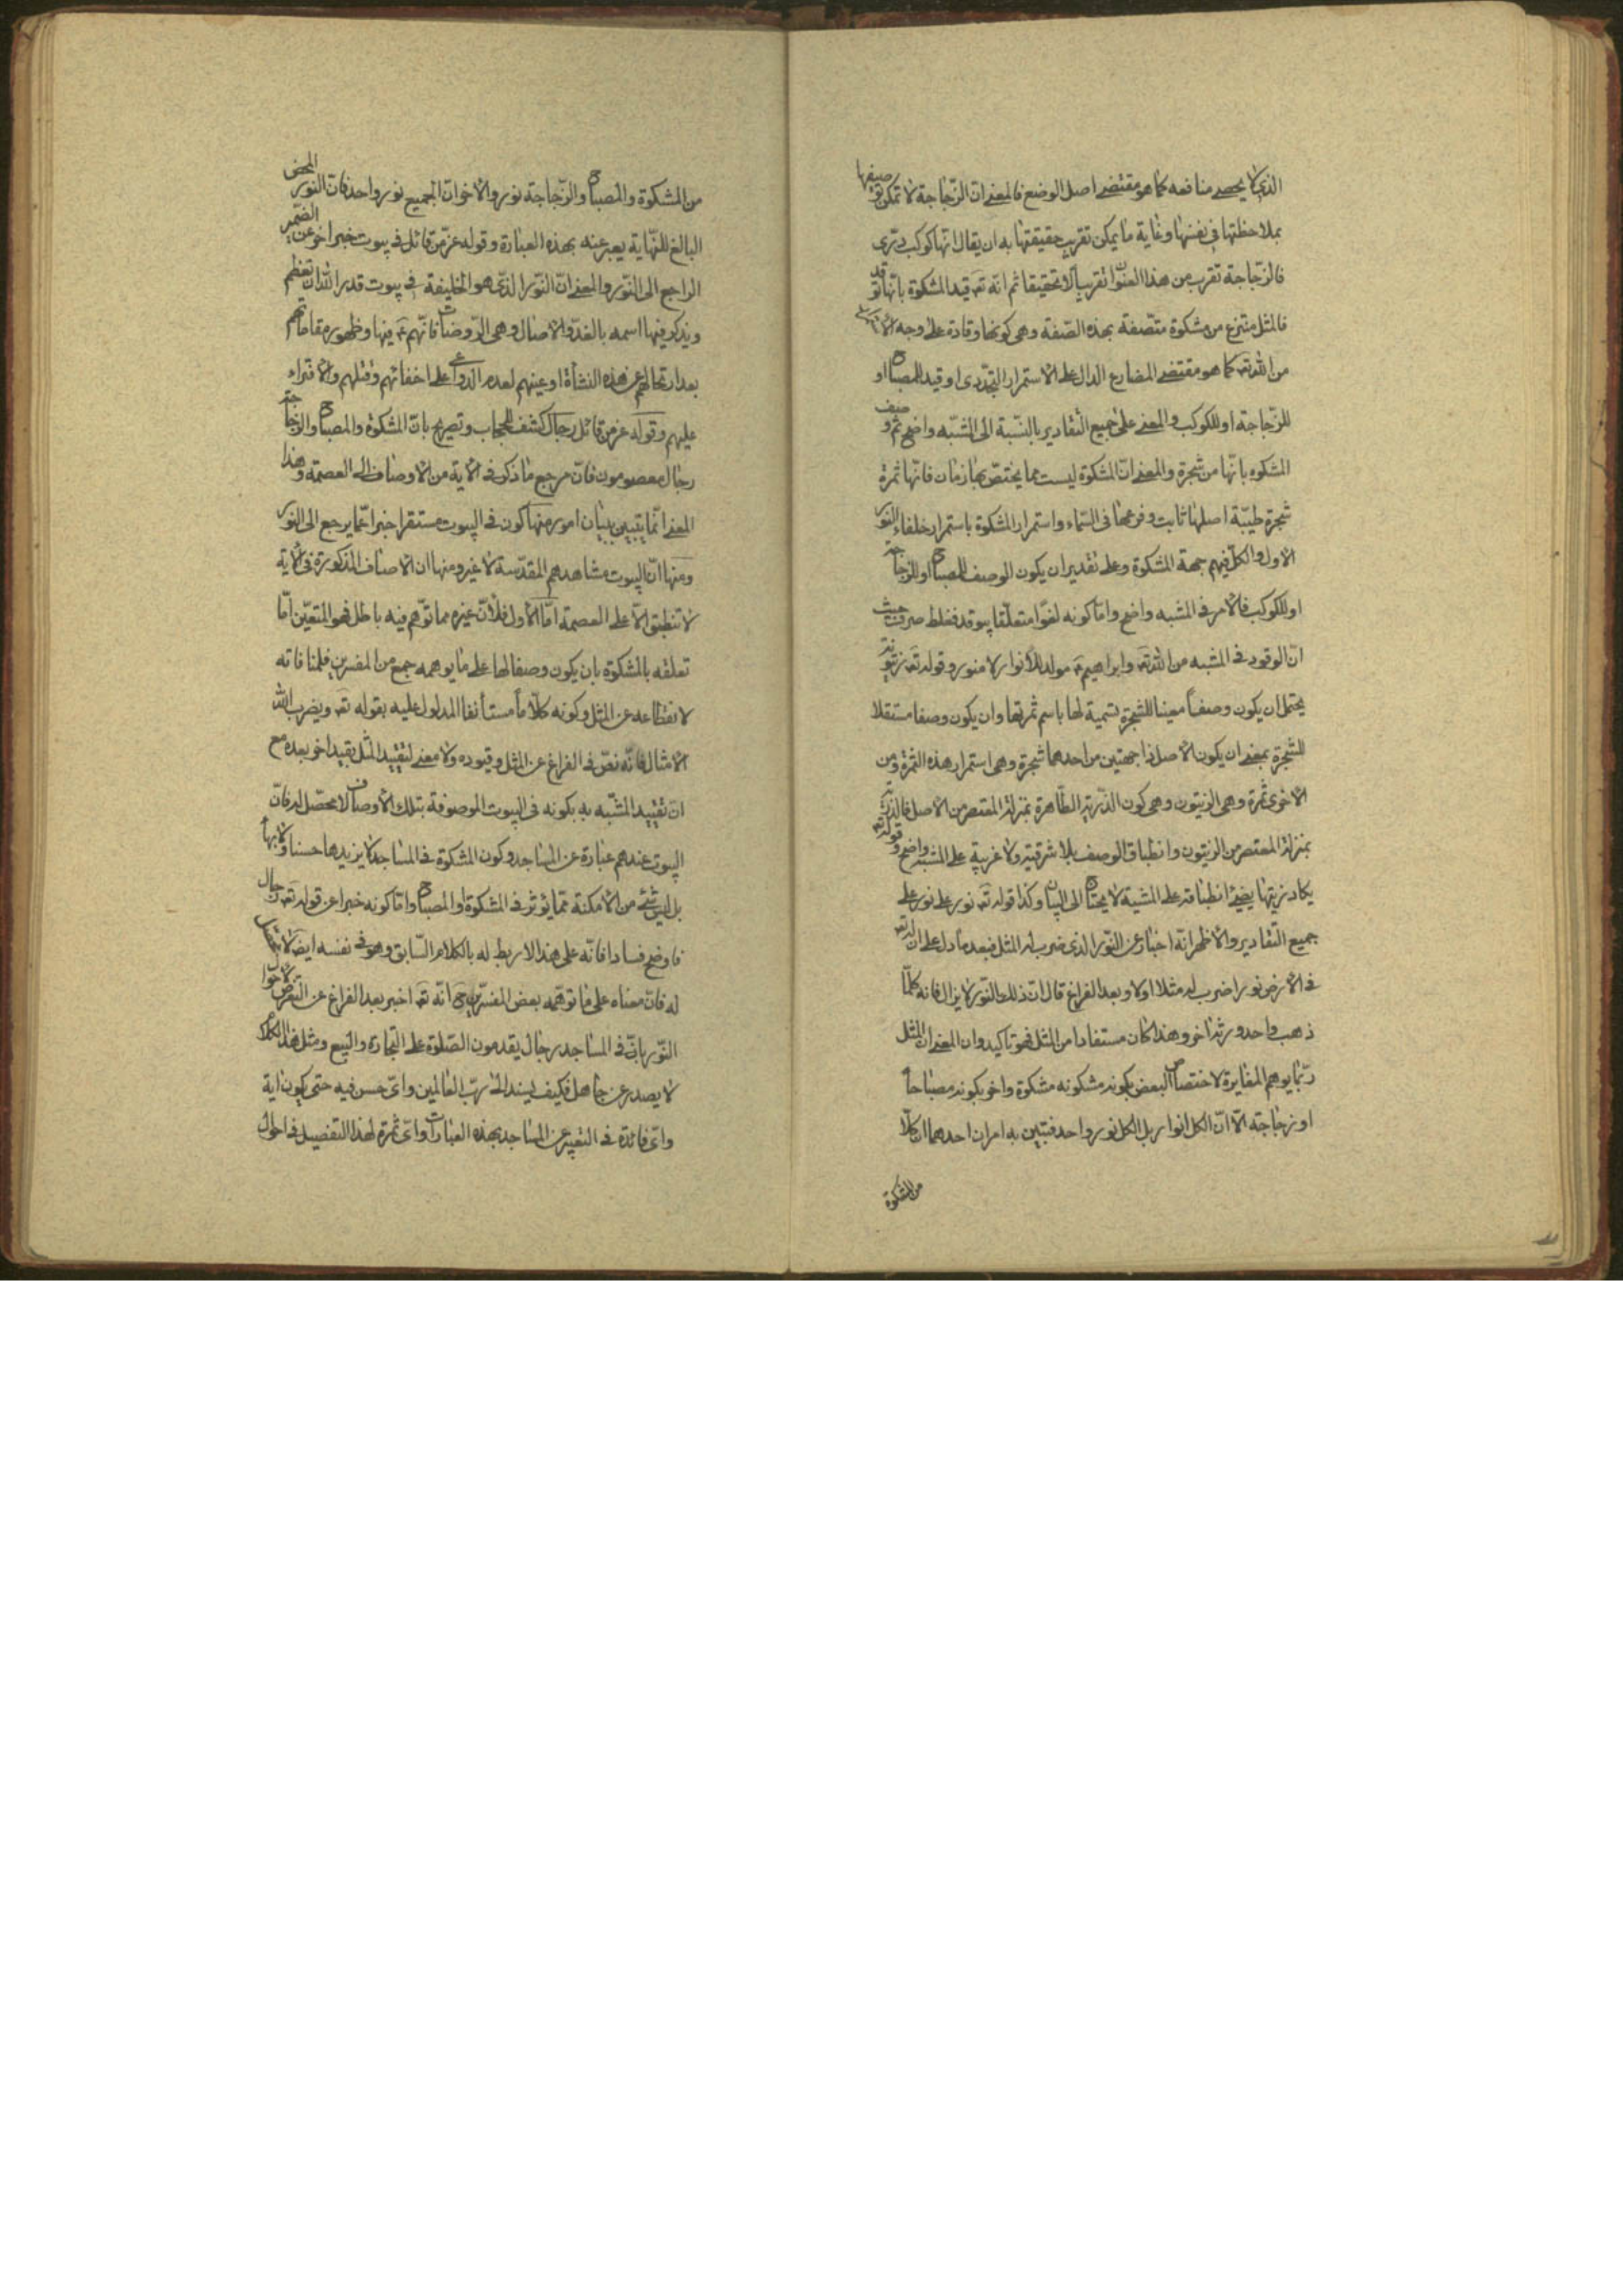 الذي لا يحصى منافعه كما هو مقتضى اصل الوضع فالمعنى ان الزجاجة لا تمكن توصيفها
بملاحظتها فى نفسها وغاية ما يمكن تقريب حقيقتها به ان يقال انها كوكب درى
فالزجاجة تقرب من هذا العنوان تقريبا لا تحقيقا ثم انه تع قيد المشكوة بانها توقد
فالمثل منتزع من مشكوة متصفة بهذه الصفة وهى كونها وقادة على وجه
من الله تع كما هو مقتضى المضارع الدال على الاستمرار التجددى او قيد للمصباح او
للزجاجة او للكوكب والمعنى على جميع التقادير بالنسبة الى المشبه واضح ثم وصف
المشكوه بانها من شجرة والمعنى ان المشكوة ليست مما يختص بها زمان فانها ثمرة
شجرة طيبة اصلها ثابت وفرعها فى السماء واستمرار المشكوة باستمرار خلفاء النور
الاول والكل فيهم جهة المشكوة وعلى تقدير ان يكون الوصف للمصباح او للزجاجة
او للكوكب فالامر فى المشبه واضح واما كونه لغوا متعلقا بيوقد فغلط صرف حيث
ان الوقود فى المشبه من الله تع وابراهيم ع مولد للانوار لا منور وقوله تع زيتونة
يحتمل ان يكون وصفا معينا للشجرة تسمية لها باسم ثمرتها وان يكون وصفا مستقلا
للشجرة بمعنى ان يكون الاصل ذا جهتين من احدهما شجرة وهى استمرار هذه الثمرة ومن
الاخرى ثمرة وهى الزيتون وهى كون الذرية الطاهرة بمنزلة المعتصر من الاصل فالذرية
بمنزلة المعتصر من الزيتون وانطباق الوصف بلا شرقية ولا غربية على المشبه واضح وقوله تع
يكاد زيتها يضئ انطباقه على المشبه لا يحتاج الى البيان وكذا قوله تع نور على نور على
جميع التقادير والاظهر انه اخبار عن النور الذى ضرب له المثل فبعد ما دل على ان لله تع
فى الارض نورا ضرب له مثلا اولا وبعد الفراغ قال ان ذلك النور لا يزال فانه كلما
ذهب واحد ورثه اخر وهذا كان مستفادا من المثل فهو تاكيد وان المعنى ان المثل
ربما يوهم المغايرة لاختصاص البعض بكونه مشكوة واخر بكونه مصباحا
او زجاجة الا ان الكل انوار بل الكل نور واحد فتبين به امران احدهما ان كلا
من المشكوة
من المشكوة والمصباح والزجاجة نور والاخر ان الجميع نور واحد فان النور المحض
البالغ للنهاية يعبر عنه بهذه العبارة وقوله عز من قائل فى بيوت خبر اخر عن الضمير
الراجع الى النور والمعنى ان النور الذى هو الخليفة فى بيوت قدر الله ان تعظم
ويذكر فيها اسمه بالغدو والاصال وهى الروضات فانهم ع فيها وظهور مقاماتهم
بعد ارتحالهم عن هذه النشأة او عينهم لعدم الدواعى على اخفائهم وقتلهم والافتراء
عليهم وقوله عز من قائل رجال كشف للحجاب وتصريح بان المشكوة والمصباح والزجاجة
رجال معصومون فان مرجع ما ذكر فى الاية من الاوصاف الى العصمة وهذا
المعنى انما يتبين ببيان امور منها كون فى البيوت مستقرا خبرا عما يرجع الى النور
ومنها ان البيوت مشاهدهم المقدسة لا غير ومنها ان الاصناف المذكورة فى الاية
لا تنطبق الا على العصمة اما الاول فلأن غيره مما توهم فيه باطل فهو المتعين اما
تعلقه بالمشكوة بان يكون وصفا لها على ما يوهمه جمع من المفسرين فلمنافاته
لانقطاعه عن المثل وكونه كلاما مستأنفا المدلول عليه بقوله تع ويضرب الله
الامثال فانه نص فى الفراغ عن المثل وقيوده ولا معنى لتقييد المثل بقيد اخر بعده مع
ان تقييد المشبه به بكونه فى البيوت الموصوفة بتلك الاوصاف لا محصل له فان
البيوت عندهم عبارة عن المساجد وكون المشكوة فى المساجد لا يزيدها حسنا ولا بهاء
بل ليس شئ من الامكنة مما يؤثر فى المشكوة او المصباح واما كونه خبرا عن قوله تع رجال
فاوضح فسادا فانه على هذا لا ربط له بالكلام السابق وهو فى نفسه ايضا
له فان معناه على ما توهمه بعض المفسرين ح انه تع اخبر بعد الفراغ عن التعرض لاحوال
النور بان فى المساجد رجال يقدمون الصلوة على التجارة والبيع ومثل هذا الكلام
لا يصدر عن جاهل فكيف يسند الى رب العالمين واى حسن فيه حتى يكون اية
واى فائدة فى التعبير عن المساجد بهذه العبارات واى ثمرة لهذا التفصيل فى احوال